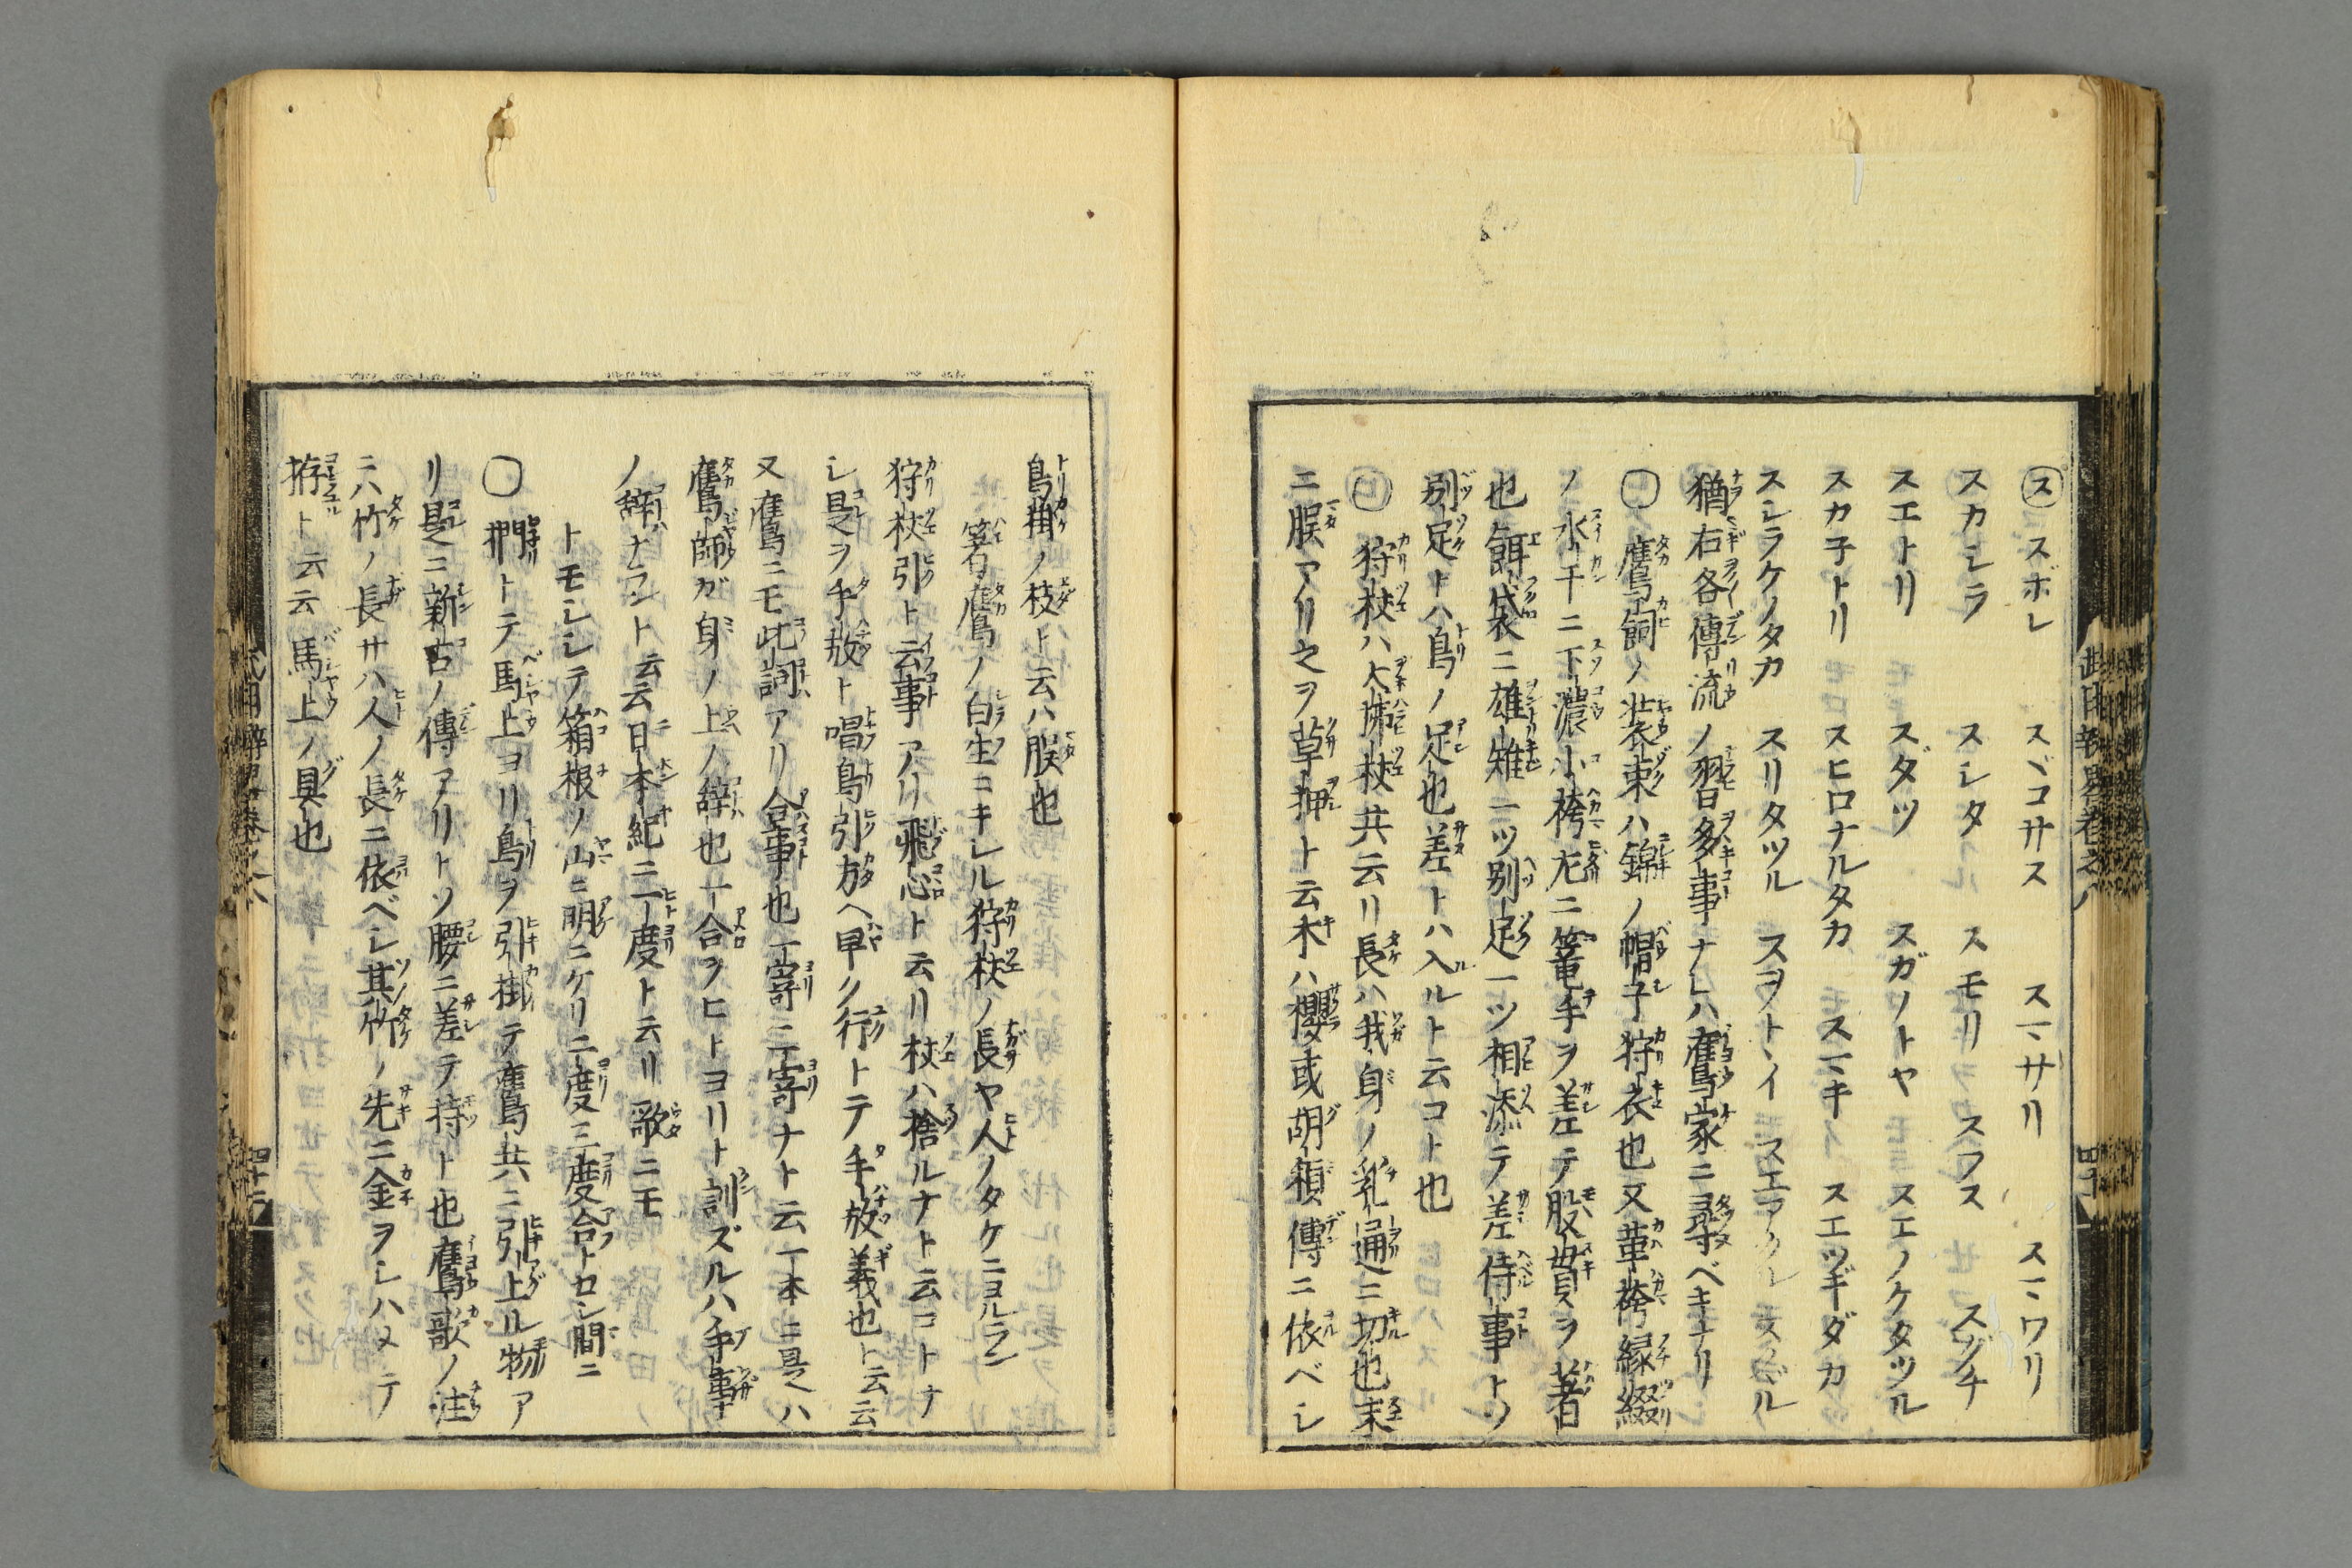 ㋜ スボレ スヾコサス スマヽサリ スマヽワリ
スカシラ スレタ スモリ スフス スヅチ
スエトリ スダツ スガノトヤ スエノケタツル
スカ子トリ スヒロナルタカ スマキ スエツギダカ
スシラケノタカ スリタツル スヲトヽイ スエアクル スノボル
猶右各傳流ノ習多事ナレハ鷹家ニ尋ベキナリ
○ 鷹飼ノ装束ハ錦ノ帽子狩衣也又革袴縁綴
ノ水干ニ下濃小袴尤ニ篭手ヲ差テ股貫ヲ着
也餌袋ニ雄雉一ツ別足一ツ相添テ差侍事トソ
別足トハ鳥ノ足也差トハ入ルト云コト也
○ 狩杖ハ犬捇杖共云リ長ハ我身ノ乳通ニ切也末
ニ脵アリ之ヲ草押ト云木ハ櫻或胡頽傳ニ依ベシ
鳥掛ノ枝ト云ハ脵也
箸鷹ノ白生ニキレル狩杖ノ長ヤ人ノタケニヨルラン
狩杖引ト云事アリ飛心ト云リ杖ハ捨ルナト云コトナ
シ是ヲ手放ト唱鳥引方ヘ早ク行トテ手放義也ト云云
又鷹ニモ此詞アリ合事也一寄二寄ナト云一本ニ是ハ
鷹師ガ身ノ上ノ辞也一合ヲヒトヨリト訓ズルハ手事
ノ辞ナラント云云日本紀ニ一度ト云リ歌ニモ
トモシシテ箱根ノ山ニ明ニケリ二度三度合トセシ間ニ
○ 捫トテ馬上ヨリ鳥ヲ引掛テ鷹共ニ引上ル物ア
リ是ニ新古ノ傳アリトソ腰ニ差テ持ト也鷹歌ノ注
ニハ竹ノ長サハ人ノ長ニ依ベシ其竹ノ先ニ金ヲシハメテ
拵ト云云馬上ノ具也